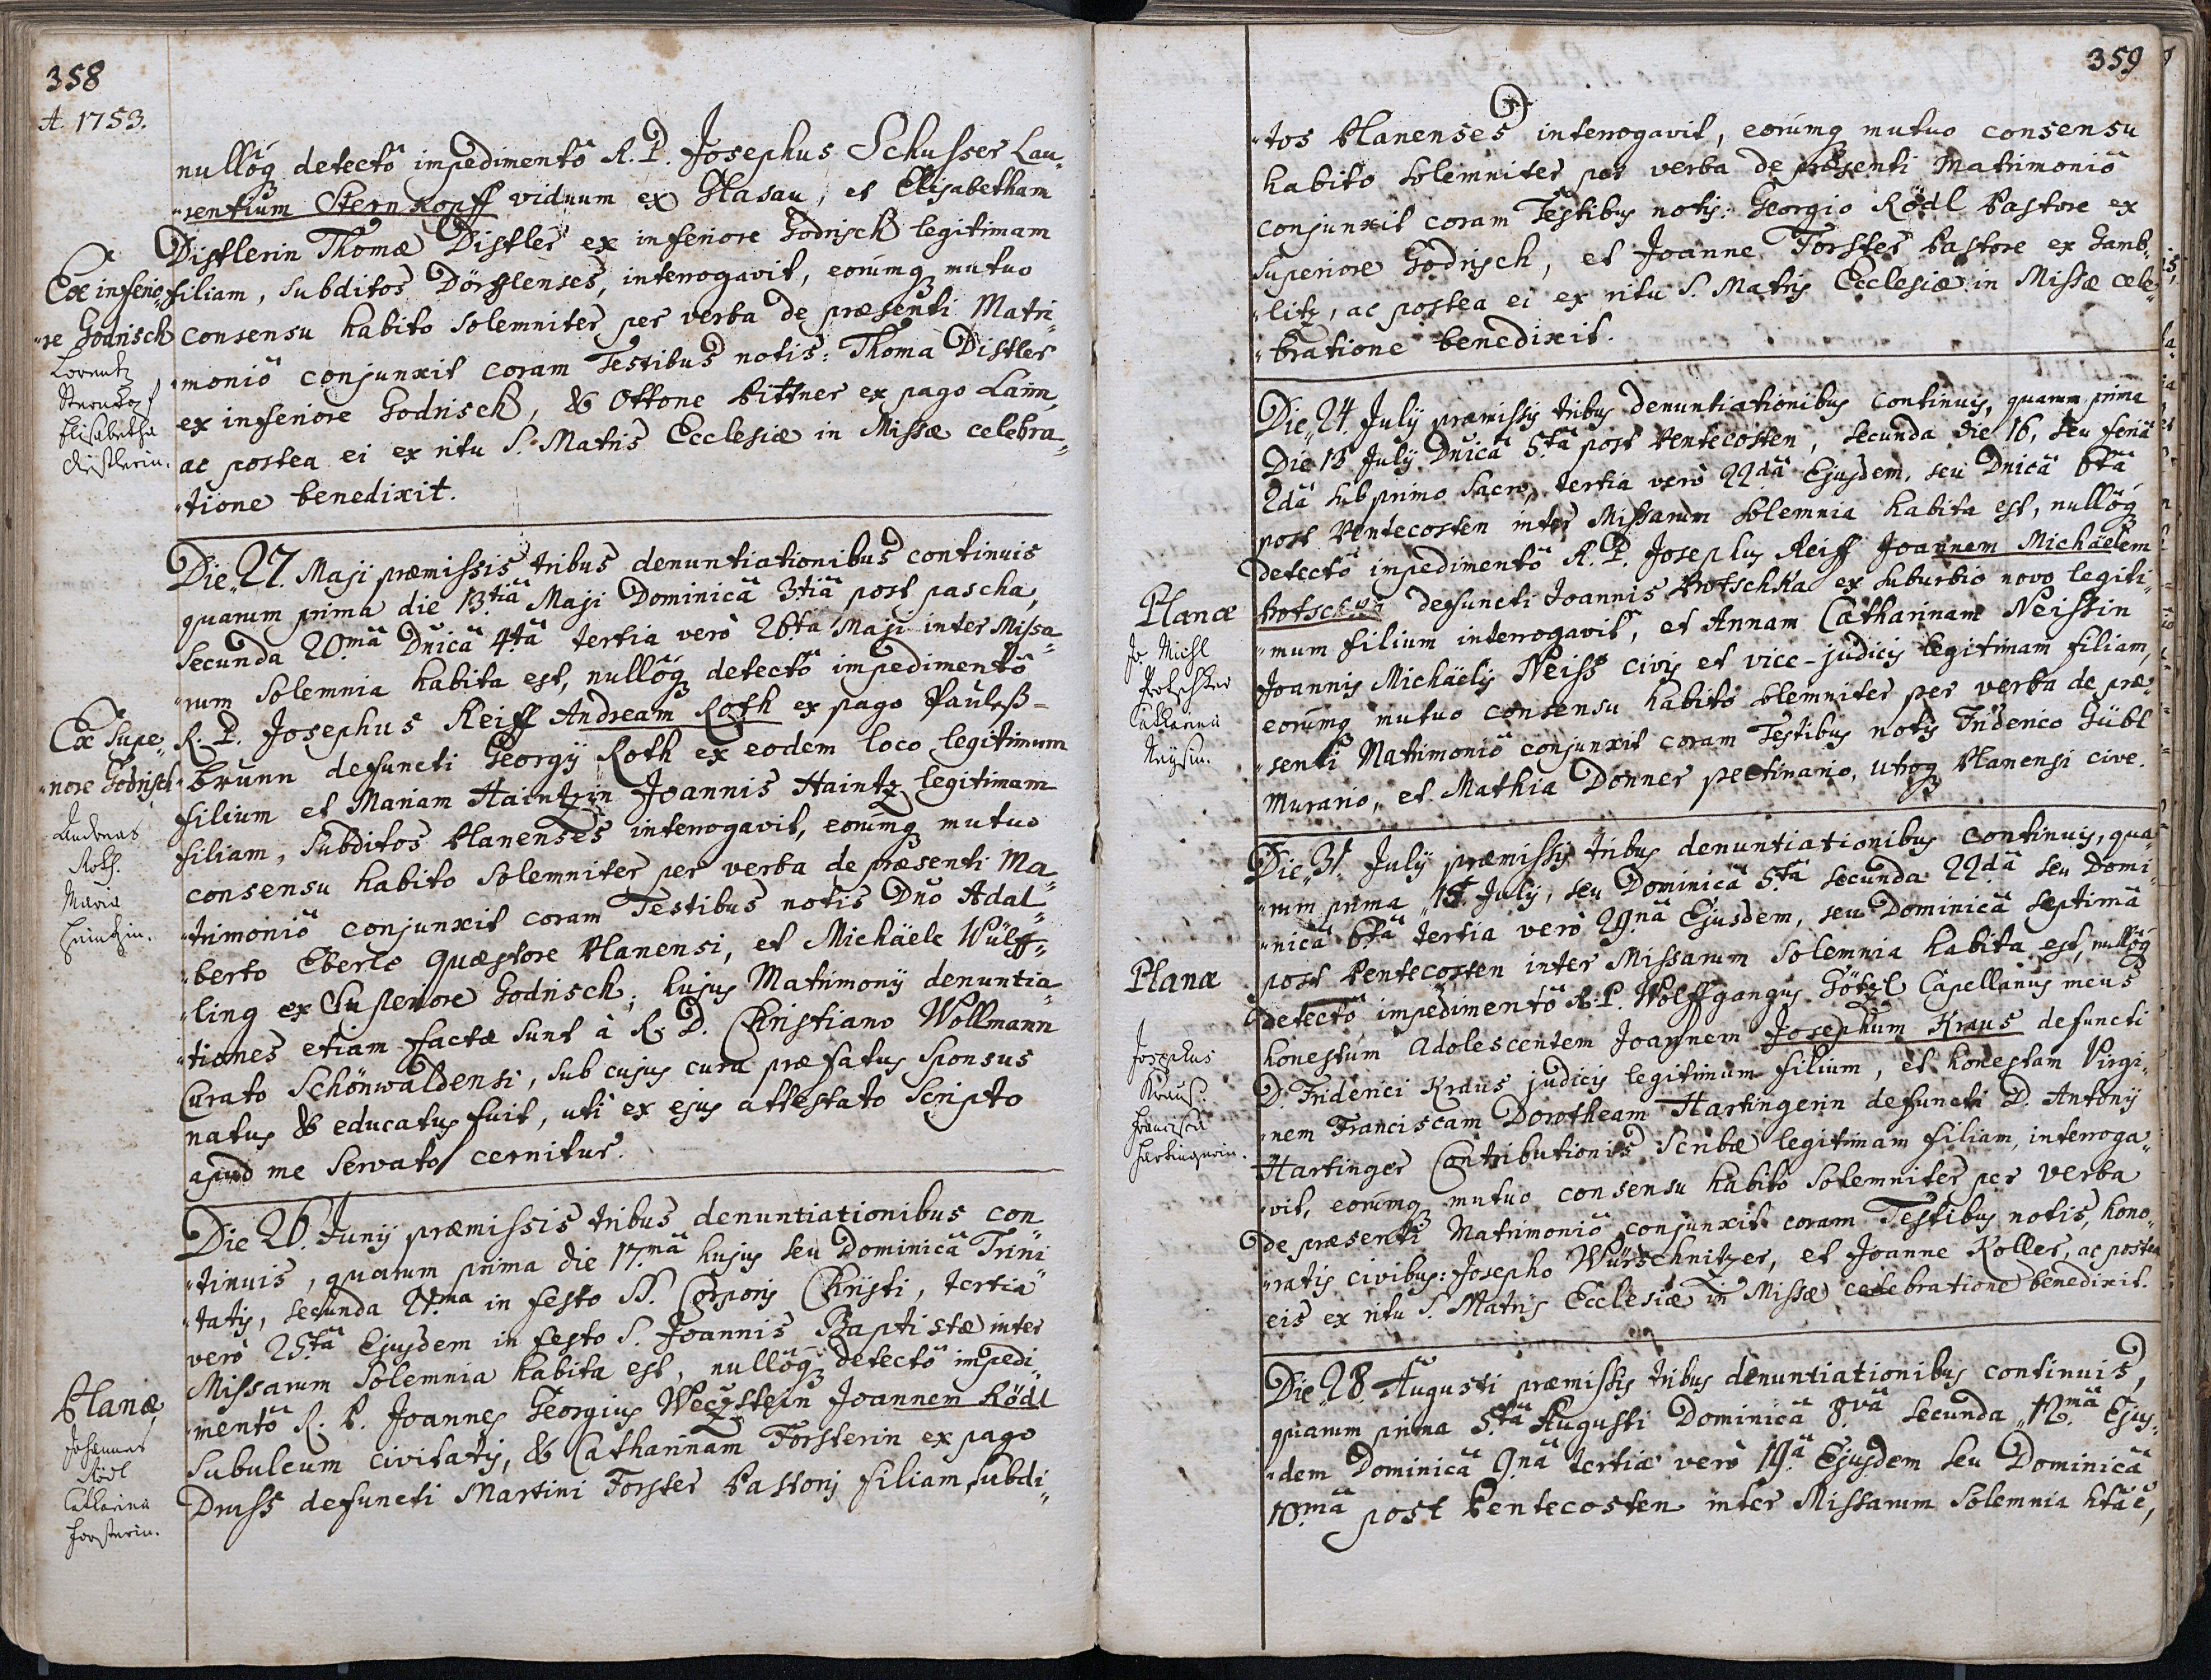 358
A. 1753.
nullôq detectô impedimentô R. P. Josephus Schusser Lau-
rentium Sternkopff viduum ex Glasau, et Elisabetham
Distlerin Thomæ Distler ex inferiore Godrisch legitimam
filiam, subditos Dörflenses, interrogavit, eorumq mutuo
consensu habito solemniter per verba de præsenti Matri-
moniô conjunxit coram Testibus notis: Thoma Distler
ex inferiore Godrisch, & Ottone Pittner ex pago Laim,
ac postea ei ex ritu S. Matris Ecclesiæ in Missæ celebra-
tione benedixit.
Ex inferio-
re Godrisch
Lorentz
Sternkopf
Elisabetha
Distlerin.
Die 27. Maji præmissis tribus denuntiationibus continuis
quarum prima die 13.tiâ Maji Dominicâ 3tiâ post pascha,
Secunda 20.mâ Dnicâ 4.tâ tertia verò 26ta Maji inter Missa-
rum Solemnia habita est, nullôq detectô impedimentô
R. P. Josephus Reiff Andream Roth ex pago Paules-
brunn defuncti Georgij Roth ex eodem loco legitimum
filium et Mariam Haintzin Joannis Haintz legitimam
filiam, Subditos Planenses interrogavit, eorumq mutuo
consensu habito Solemniter per verba de præsenti Ma-
trimoniô conjunxit coram Testibus notis Dno Adal-
berto Eberle quæstore Planensi, et Michäele Wülff-
ling ex Superiore Godrisch; hujus Matrimonij denuntia-
tiones etiam factæ sunt à R. D. Christiano Wollmann
Curato Schönwaldensi, sub cujus cura præfatus Sponsus
natus & educatus fuit, uti ex ejus attestato Scripto
apud me Servato cernitur.
Ex Supe-
riore Godrisch
Andreas
Roth.
Maria
Haintzin.
Die 26. Junij præmissis tribus denuntiationibus con-
tinuis, quarum prima die 17.mâ hujus seu Dominicâ Trini-
tatis, secunda 21.ma in festo SS. Corporis Christi, tertia
verò 25.tâ Ejusdem in festo S. Joannis Baptistæ inter
Missarum Solemnia habita est, nullôq detectô impedi-
mentô R. P. Joannes Georgius Weczstein Joannem Rödl
Subulcum civitatis, & Catharinam Forsterin ex pago
Dmss defuncti Martini Forster Pastoris filiam, subdi-
Planæ
Johannes
Rödl
Catharina
Forsterin.
359
tos Planenses interrogavit, eorumq mutuo consensu
habito solemniter per verba de præsenti Matrimoniô
conjunxit coram Testibus notis: Georgio Rödl Pastore ex
Superiore Godrisch, et Joanne Forster Pastore ex Gamb-
litz, ac postea ei ex ritu S. Matris Ecclesiæ in Missæ cele-
bratione benedixit.
Die 24. July præmissis tribus denuntiationibus continuis, quarum prima
Die 15 July Dnicâ 5.tâ post Pentecosten, secunda die 16, seu feriâ
2dâ sub primo Sacro, tertia verò 22dâ Ejusdem, seu Dnicâ 6tâ
post Pentecosten inter Missarum Solemnia habita est, nullôq
detectô impedimentô R. P. Josephus Reiff Joannem Michäelem
Protschka defuncti Joannis Protschka ex suburbio novo legiti-
mum filium interrogavit, et Annam Catharinam Neissin
Joannis Michäelis Neiss civis et vice-judicis legitimam filiam,
eorumq mutuo consensu habito solemniter per verba de præ-
senti Matrimoniô conjunxit coram Testibus notis Friderico Gübl
Murario, et Mathia Donner pectinario, utroq Planensi cive.
Planæ
Jo. Michl
Protschka
Catharina
Neyssin.
Die 31. July præmissis tribus denuntiationibus continuis, qua-
rum prima 15. July, seu Dominicâ 5.tâ secunda 22dâ seu Domi-
nicâ 6.tâ tertia verò 29.nâ Ejusdem, seu Dominicâ septimâ
post Pentecosten inter Missarum Solemnia habita est, nullôq
detectô impedimentô R. P. Wolffgangus Götzl Capellanus meus
honestum adolescentem Joannem Josephum Kraus defuncti
D. Friderici Kraus judicis legitimum filium, et honestam Virgi-
nem Franciscam Dorotheam Hartingerin defuncti D. Antonij
Hartinger Contributionis Scribæ legitimam filiam, interroga-
vit, eorumq mutuo consensu habito Solemniter per verba
de præsenti Matrimoniô conjunxit coram Testibus notis, hono-
ratis civibus: Josepho Würschnitzer, et Joanne Koller, ac postea
eis ex ritu S. Matris Ecclesiæ in Missæ celebratione benedixit.
Planæ
Josephus
Kraus.
Francisca
Hartingerin.
Die 28. Augusti præmissis tribus denuntiationibus continuis,
quarum prima 5.tâ Augusti Dominicâ 8.vâ secunda 12.mâ Ejus-
dem Dominicâ 9.nâ tertia verò 19.â Ejusdem seu Dominicâ
10.mâ post Pentecosten inter Missarum Solemnia hta ê,